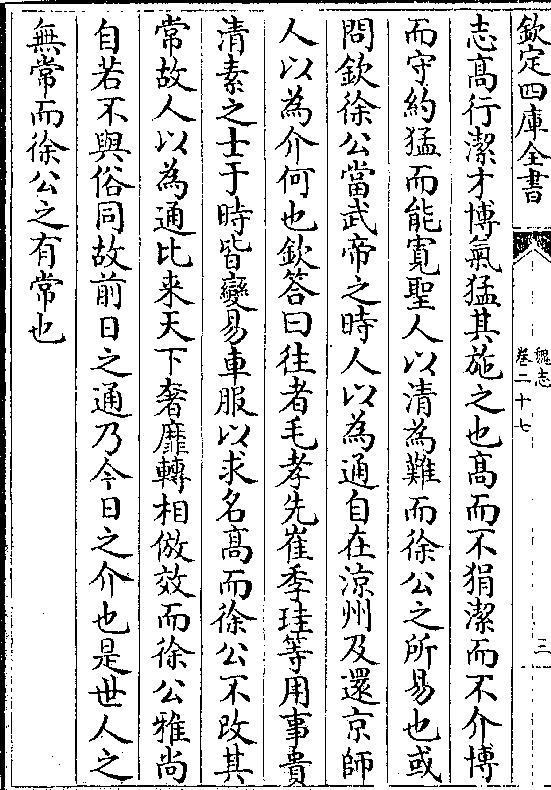 欽定四庫全書
魏志
卷二十七
三
志髙行潔才博氣猛其施之也髙而不狷潔而不介博
而守約猛而能寛聖人以清為難而徐公之所易也或
問欽徐公當武帝之時人以為通自在涼州及還京師
人以為介何也欽答曰往者毛孝先崔季珪等用事貴
清素之士于時皆變易車服以求名髙而徐公不改其
常故人以為通比来天下奢靡轉相倣效而徐公雅尚
自若不與俗同故前日之通乃今日之介也是世人之
無常而徐公之有常也